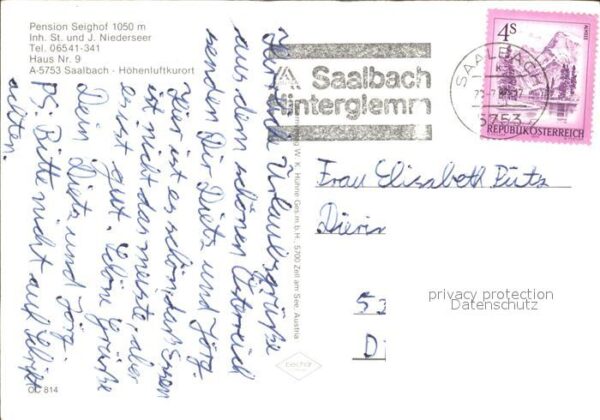 Pension Seighof 1050 m
Inh. St. und J. Niederseer
Tel. 06541-341
Haus Nr. 9
A-5753 Saalbach - Höhenluftkurort
Saalbach
Hinterglemm
SAALBACH
5753
4 S
REPUBLIK ÖSTERREICH
Urlaubsgrüße
aus dem schönen Österreich
senden Dir Diets und Jörg.
Hier ist es schön, das Essen
ist nicht das meiste, aber
es ist gut. Schöne Grüße
Dein Diets und Jörg.
PS: Bitte nicht auf Schrift
achten.
W. K. Hühne Ges.m.b.H., 5700 Zell am See, Austria
Frau Elisabeth
53
D
privacy protection
Datenschutz
bechar
OC 814